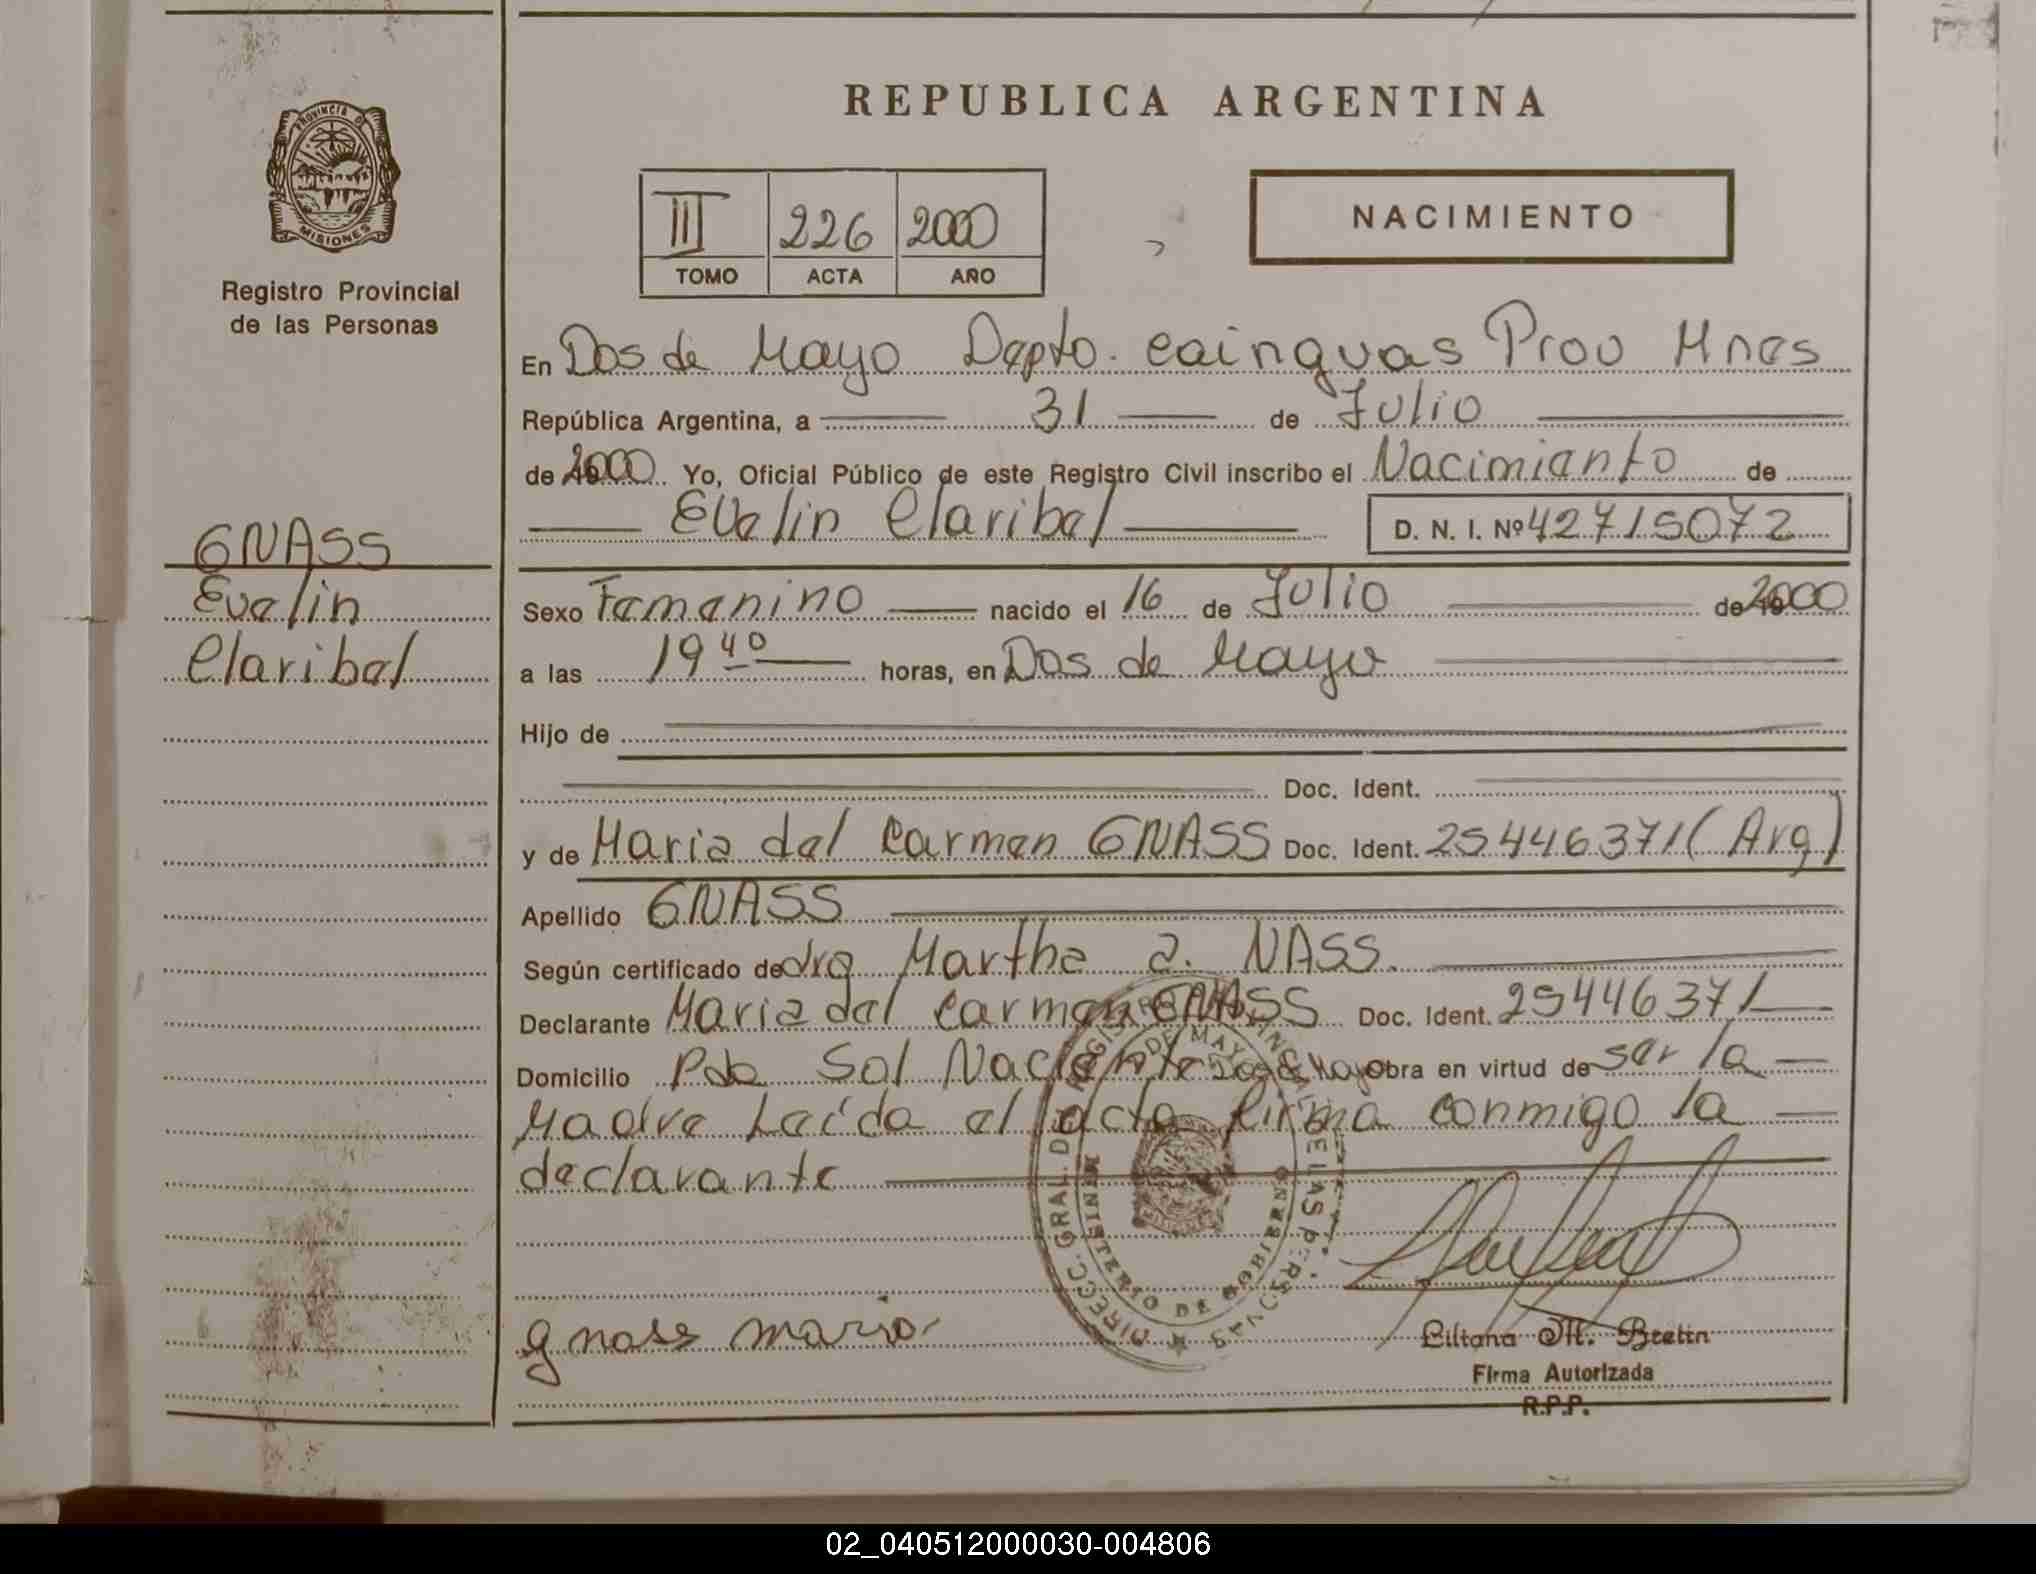 REPUBLICA ARGENTINA
PROVINCIA D
MISIONES
Registro Provincial
de las Personas
III 226 2000
TOMO ACTA AÑO
NACIMIENTO
En Dos de Mayo Depto. cainguas Prov Mnes
República Argentina, a 31 de Julio
de 2000 Yo, Oficial Público de este Registro Civil inscribo el Nacimiento de
Evelin Claribel D. N. I. Nº 42715072
GNASS
Evelin
Claribel
Sexo Femenino nacido el 16 de Julio de 2000
a las 19 40 horas, en Dos de Mayo
Hijo de
Doc. Ident.
y de Maria del Carmen GNASS Doc. Ident. 25446371 (Arg)
Apellido GNASS
Según certificado de dra Martha a. NASS.
Declarante Maria del Carmen GNASS Doc. Ident. 25446371
Domicilio Pda Sol Naciente Dos de Mayo Obra en virtud de ser la
Madre Leída el acta firma conmigo la
declarante
DIRECC. GRAL. DE
MINISTERIO DE GOBIERNO
DE MAYO
gnass maria
Liliana M. Brelin
Firma Autorizada
R.P.P.
02_040512000030-004806